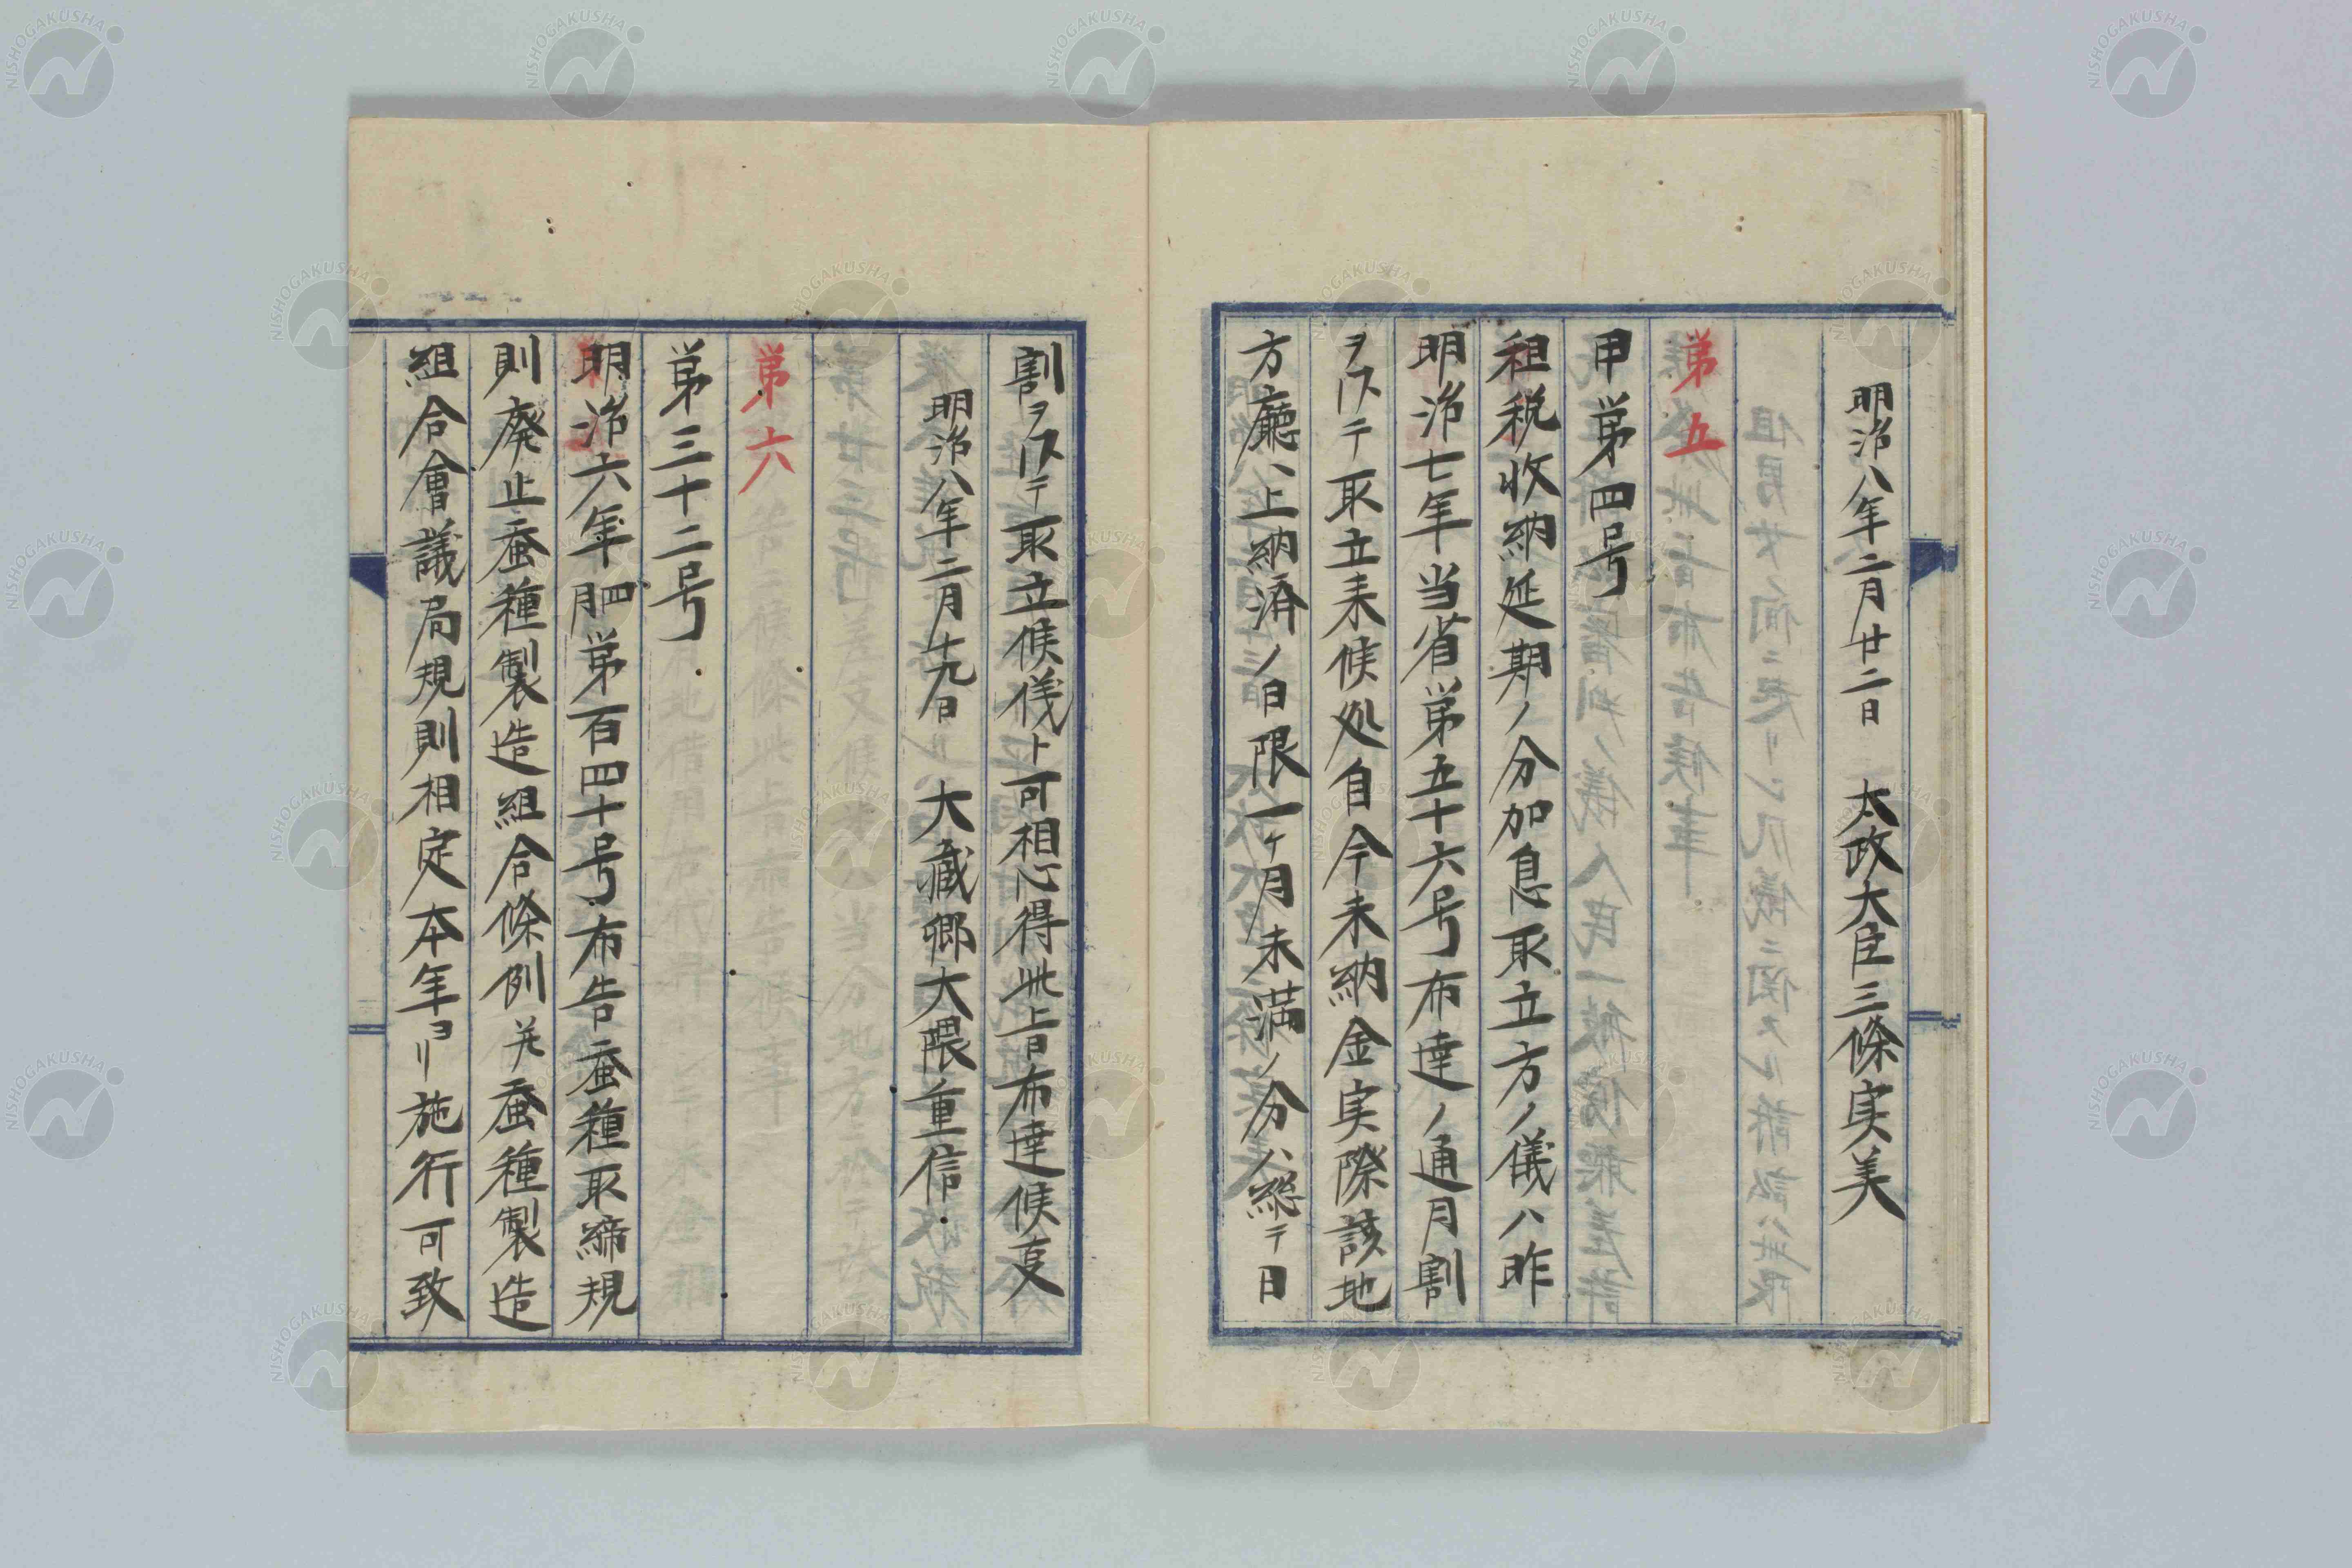 明治八年二月廿二日　太政大臣三條実美
第五
甲第四号
租税收納延期ノ分加息取立方ノ儀ハ昨
明治七年当省第五十六号布達ノ通月割
ヲ以テ取立来候処自今未納金実際該地
方廳ヘ上納済ノ日限一ヶ月未満ノ分ハ総テ日
割ヲ以テ取立候儀ト可相心得此旨布達候事
明治八年二月十九日　大蔵卿大隈重信
第六
第三十二号
明治六年四月第百四十号布告蚕種取締規
則廃止蚕種製造組合條例并蚕種製造
組合會議局規則相定本年ヨリ施行可致
NISHOGAKUSHA